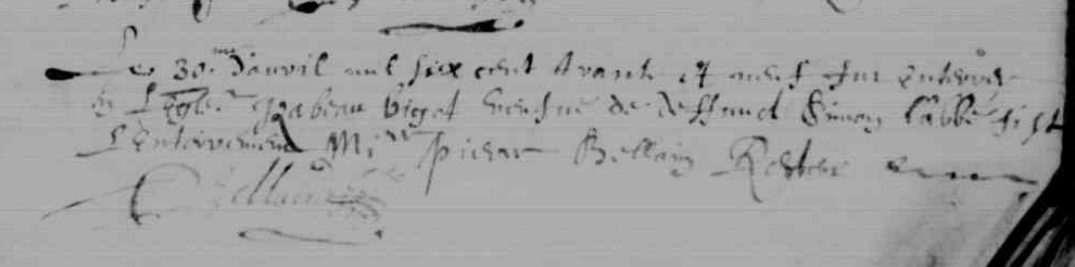 Le 30.me d'auvril mil six cent trante et neuf fut enterree
en l'Egle. Isabeau bigot veufve de deffunct Simon labbé fist
l'enterrement M.re Pierre Bellain